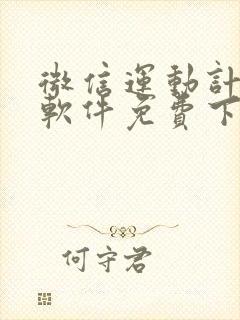 微信運動計
軟件免費下
何守君